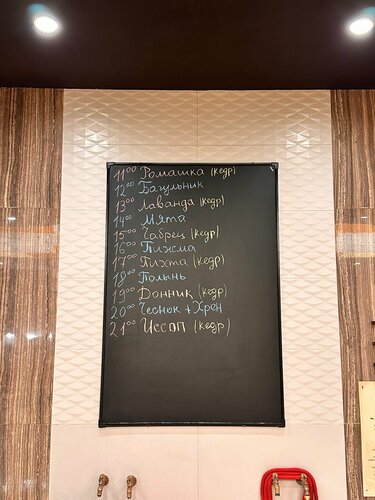 11⁰⁰ Ромашка (кедр)
12⁰⁰ Багульник
13⁰⁰ Лаванда (кедр)
14⁰⁰ Мята
15⁰⁰ Чабрец (кедр)
16⁰⁰ Пижма
17⁰⁰ Пихта (кедр)
18⁰⁰ Полынь
19⁰⁰ Донник (кедр)
20⁰⁰ Чеснок + Хрен
21⁰⁰ Иссоп (кедр)